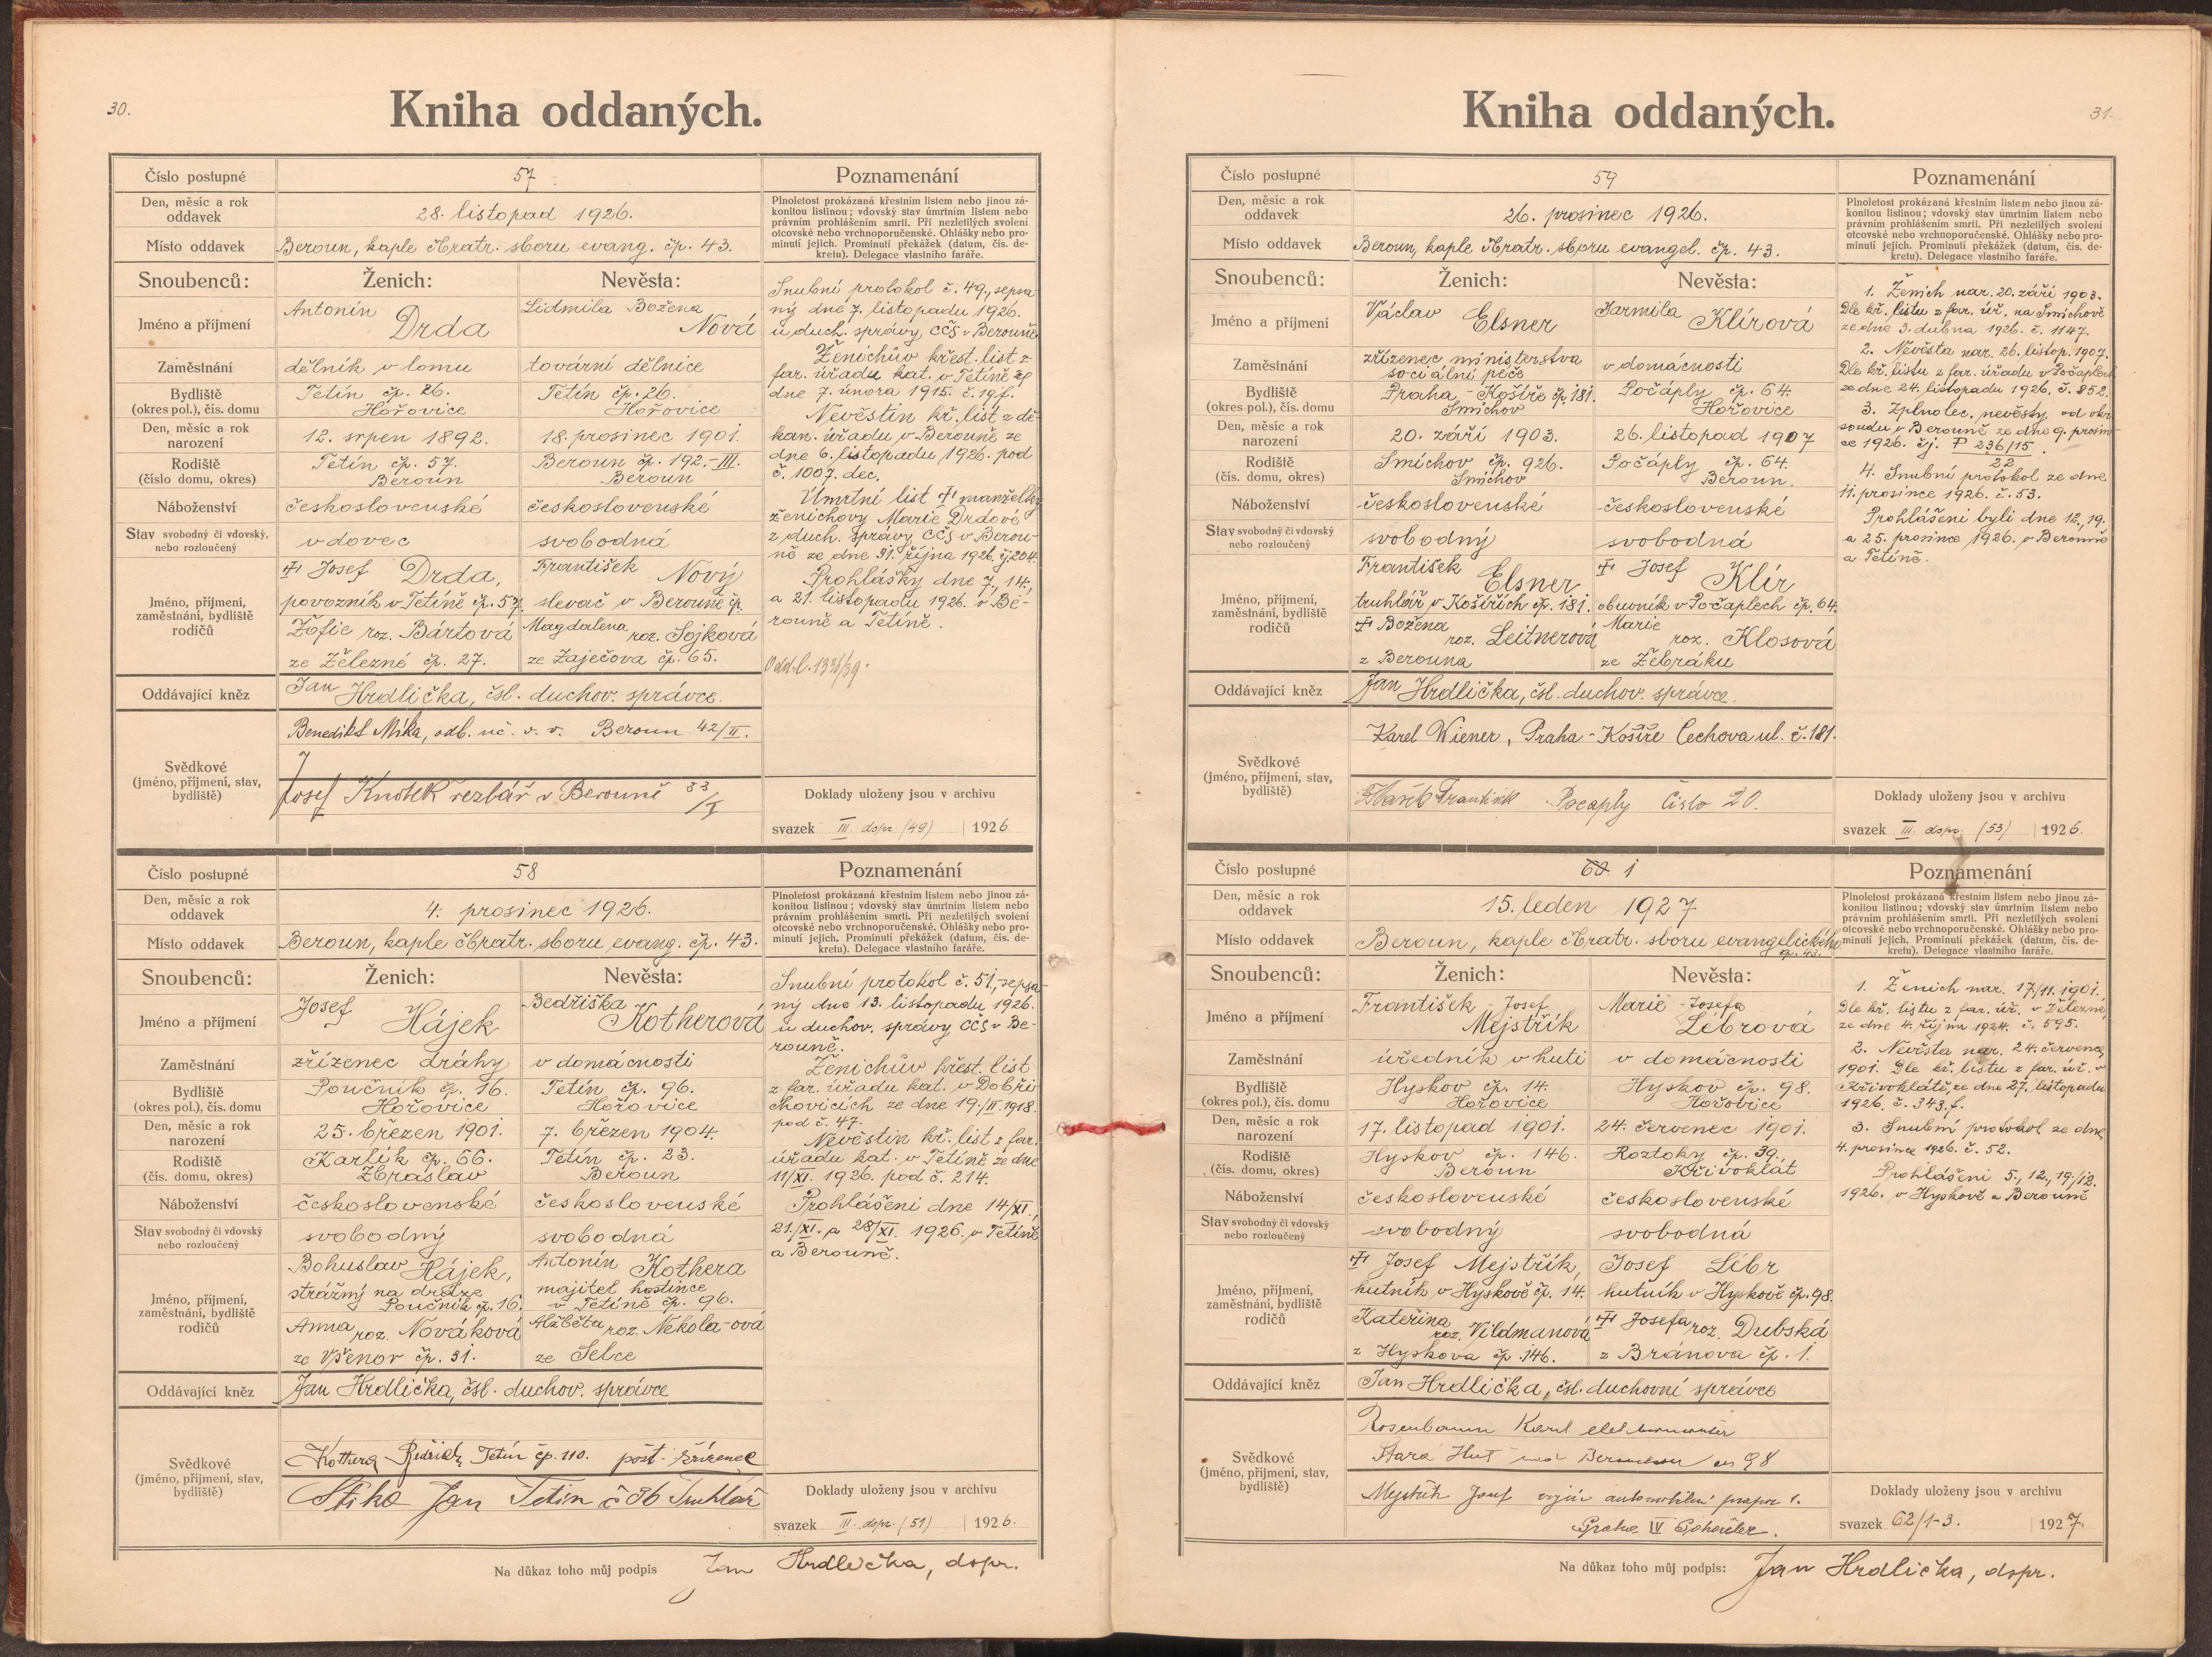 30.
Kniha oddaných.
Číslo postupné 57
Poznamenání
Den, měsíc a rok oddavek 28. listopad 1926.
Místo oddavek Beroun, kaple čbratr. sboru evang. čp. 43.
Plnoletost prokázaná křestním listem nebo jinou zá-
konitou listinou; vdovský stav úmrtním listem nebo
právním prohlášením smrti. Při nezletilých svolení
otcovské nebo vrchnoporučenské. Ohlášky nebo pro-
minutí jejich. Prominutí překážek (datum, čís. de-
kretu). Delegace vlastního faráře.
Snoubenců: Ženich: Nevěsta:
Jméno a příjmení Antonín Drda Lidmila Božena Nová
Zaměstnání dělník v lomu tovární dělnice
Bydliště (okres pol.), čís. domu Tetín čp. 26. Hořovice Tetín čp. 26. Hořovice
Den, měsíc a rok narození 12. srpen 1892. 18. prosinec 1901.
Rodiště (číslo domu, okres) Tetín čp. 57. Beroun Beroun čp. 192.-III. Beroun
Náboženství československé československé
Stav svobodný či vdovský, nebo rozloučený vdovec svobodná
Jméno, příjmení, zaměstnání, bydliště rodičů
Josef Drda, František Nový
povozník v Tetíně čp. 57. slevač v Berouně čp.
Žofie roz. Bártová Magdalena roz. Sojková
ze Železné čp. 27. ze Zaječova čp. 65.
Oddávající kněz Jan Hrdlička, čsl. duchov. správce.
Svědkové (jméno, příjmení, stav, bydliště)
Benedikt Mika, odb. uč. v. v. Beroun 42/II.
Josef Knotek řezbář v Berouně 33/I
Snubní protokol č. 49, sepsa
ný dne 7. listopadu 1926.
u duch. správy CČS v Berouně.
Ženichův křest. list z
far. úřadu kat. v Tetíně ze
dne 7. února 1915. č. 19 f.
Nevěstin kř. list z dě-
kan. úřadu v Berouně ze
dne 6. listopadu 1926. pod
č. 1007. dec.
Úmrtní list manželky
ženichovy Marie Drdové
z duch. správy CČS v Berou-
ně ze dne 31. října 1926. čj. 204.
Prohlášky dne 7., 14.,
a 21. listopadu 1926. v Be-
rouně a Tetíně.
Odd. l. 1336/39.
Doklady uloženy jsou v archivu
svazek III. dspr. (49) 1926
Číslo postupné 58
Poznamenání
Den, měsíc a rok oddavek 4. prosinec 1926.
Místo oddavek Beroun, kaple čbratr. sboru evang. čp. 43.
Plnoletost prokázaná křestním listem nebo jinou zá-
konitou listinou; vdovský stav úmrtním listem nebo
právním prohlášením smrti. Při nezletilých svolení
otcovské nebo vrchnoporučenské. Ohlášky nebo pro-
minutí jejich. Prominutí překážek (datum, čís. de-
kretu). Delegace vlastního faráře.
Snoubenců: Ženich: Nevěsta:
Jméno a příjmení Josef Hájek Bedřiška Kotherová
Zaměstnání zřízenec dráhy v domácnosti
Bydliště (okres pol.), čís. domu Poučník čp. 16. Hořovice Tetín čp. 96. Hořovice
Den, měsíc a rok narození 25. březen 1901. 7. březen 1904.
Rodiště (čís. domu, okres) Karlík čp. 66. Zbraslav Tetín čp. 23. Beroun
Náboženství československé československé
Stav svobodný či vdovský nebo rozloučený svobodný svobodná
Jméno, příjmení, zaměstnání, bydliště rodičů
Bohuslav Hájek, Antonín Kothera
strážný na dráze Poučník čp. 16. majitel hostince v Tetíně čp. 96.
Anna roz. Nováková Alžběta roz. Nekola-ová
ze Všenor čp. 31. ze Selce
Oddávající kněz Jan Hrdlička, čsl. duchov. správce
Svědkové (jméno, příjmení, stav, bydliště)
Kothera Bedřich, Tetín čp. 110. pošt. zřízenec
Jan Tetín č 36 Truhlář
Snubní protokol č. 51, sepsa-
ný dne 13. listopadu 1926.
u duchov. správy CČS v Be-
rouně.
Ženichův křest. list
z far. úřadu kat. v Dobři-
chovicích ze dne 19./II. 1918.
pod č. 47.
Nevěstin kř. list z far.
úřadu kat. v Tetíně ze dne
11/XI. 1926. pod č. 214.
Prohlášeni dne 14/XI.,
21./XI. a 28/XI. 1926. v Tetíně
a Berouně.
Doklady uloženy jsou v archivu
svazek III. dspr. (51) 1926.
Na důkaz toho můj podpis Jan Hrdlička, dspr.
31.
Kniha oddaných.
Číslo postupné 59
Poznamenání
Den, měsíc a rok oddavek 26. prosinec 1926.
Místo oddavek Beroun, kaple čbratr. sboru evangel. čp. 43.
Plnoletost prokázaná křestním listem nebo jinou zá-
konitou listinou; vdovský stav úmrtním listem nebo
právním prohlášením smrti. Při nezletilých svolení
otcovské nebo vrchnoporučenské. Ohlášky nebo pro-
minutí jejich. Prominutí překážek (datum, čís. de-
kretu). Delegace vlastního faráře.
Snoubenců: Ženich: Nevěsta:
Jméno a příjmení Václav Elsner Jarmila Klírová
Zaměstnání zřízenec ministerstva sociální péče v domácnosti
Bydliště (okres pol.), čís. domu Praha - Košíře čp. 181. Smíchov Počáply čp. 64. Hořovice
Den, měsíc a rok narození 20. září 1903. 26. listopad 1907
Rodiště (čís. domu, okres) Smíchov čp. 926. Smíchov Počáply čp. 64. Beroun.
Náboženství československé československé
Stav svobodný či vdovský nebo rozloučený svobodný svobodná
Jméno, příjmení, zaměstnání, bydliště rodičů
František Elsner Josef Klír
truhlář v Košířích čp. 181. obuvník v Počaplech čp. 64.
Božena roz. Leitnerová Marie roz. Klosová
z Berouna ze Žebráku
Oddávající kněz Jan Hrdlička, čsl. duchov. správce.
Svědkové (jméno, příjmení, stav, bydliště)
Karel Wiener, Praha - Košíře Čechova ul. č. 181.
František Pocaply Číslo 20.
1. Ženich nar. 20. září 1903.
Dle kř. listu z far. úř. na Smíchově
ze dne 3. dubna 1926. č. 1147.
2. Nevěsta nar. 26. listop. 1907.
Dle kř. listu z far. úřadu v Počaplech
ze dne 24. listopadu 1926. č. 852.
3. Zplnolec. nevěsty od okr.
soudu v Berouně ze dne 9. prosin-
ce 1926. čj. P 236/15
22
4. Snubní protokol ze dne
11. prosince 1926. č. 53.
Prohlášeni byli dne 12., 19.
a 25. prosince 1926. v Berouně
a Tetíně.
Doklady uloženy jsou v archivu
svazek III. dspr. (53) 1926.
Číslo postupné 60. 1
Poznamenání
Den, měsíc a rok oddavek 15. leden 1927
Místo oddavek Beroun, kaple čbratr. sboru evangelického čp. 43.
Plnoletost prokázaná křestním listem nebo jinou zá-
konitou listinou; vdovský stav úmrtním listem nebo
právním prohlášením smrti. Při nezletilých svolení
otcovské nebo vrchnoporučenské. Ohlášky nebo pro-
minutí jejich. Prominutí překážek (datum, čís. de-
kretu). Delegace vlastního faráře.
Snoubenců: Ženich: Nevěsta:
Jméno a příjmení František - Josef Mejstřík Marie - Josefa Lébrová
Zaměstnání úředník v huti v domácnosti
Bydliště (okres pol.), čís. domu Hyskov čp. 14. Hořovice Hyskov čp. 98. Hořovice
Den, měsíc a rok narození 17. listopad 1901. 24. červenec 1901.
Rodiště (čís. domu, okres) Hyskov čp. 146. Beroun Roztoky čp. 39., Křivoklát
Náboženství československé československé
Stav svobodný či vdovský nebo rozloučený svobodný svobodná
Jméno, příjmení, zaměstnání, bydliště rodičů
Josef Mejstřík, Josef Lébr
hutník v Hyskově čp. 14. hutník v Hyskově čp. 98.
Kateřina roz. Vildmanová Josefa roz. Dubská
z Hyskova čp. 146. z Bránova čp. 1.
Oddávající kněz Jan Hrdlička, čsl. duchovní správce
Svědkové (jméno, příjmení, stav, bydliště)
Rosenbaum Karel elektromontér
Stará Huť 98
Mejstřík Josef automobilní prapor 1.
Praha IV
1. Ženich nar. 17./11. 1901.
Dle kř. listu z far. úř. v Železné
ze dne 4. října 1924. č. 595.
2. Nevěsta nar. 24. července
1901. Dle kř. listu z far. úř. v
Křivoklátě ze dne 27. listopadu
1926. č. 343. f.
3. Snubní protokol ze dne
4. prosince 1926. č. 52.
Prohlášeni 5., 12., 19./12.
1926. v Hyskově a Berouně
Doklady uloženy jsou v archivu
svazek 62/1-3. 1927.
Na důkaz toho můj podpis: Jan Hrdlička, dspr.